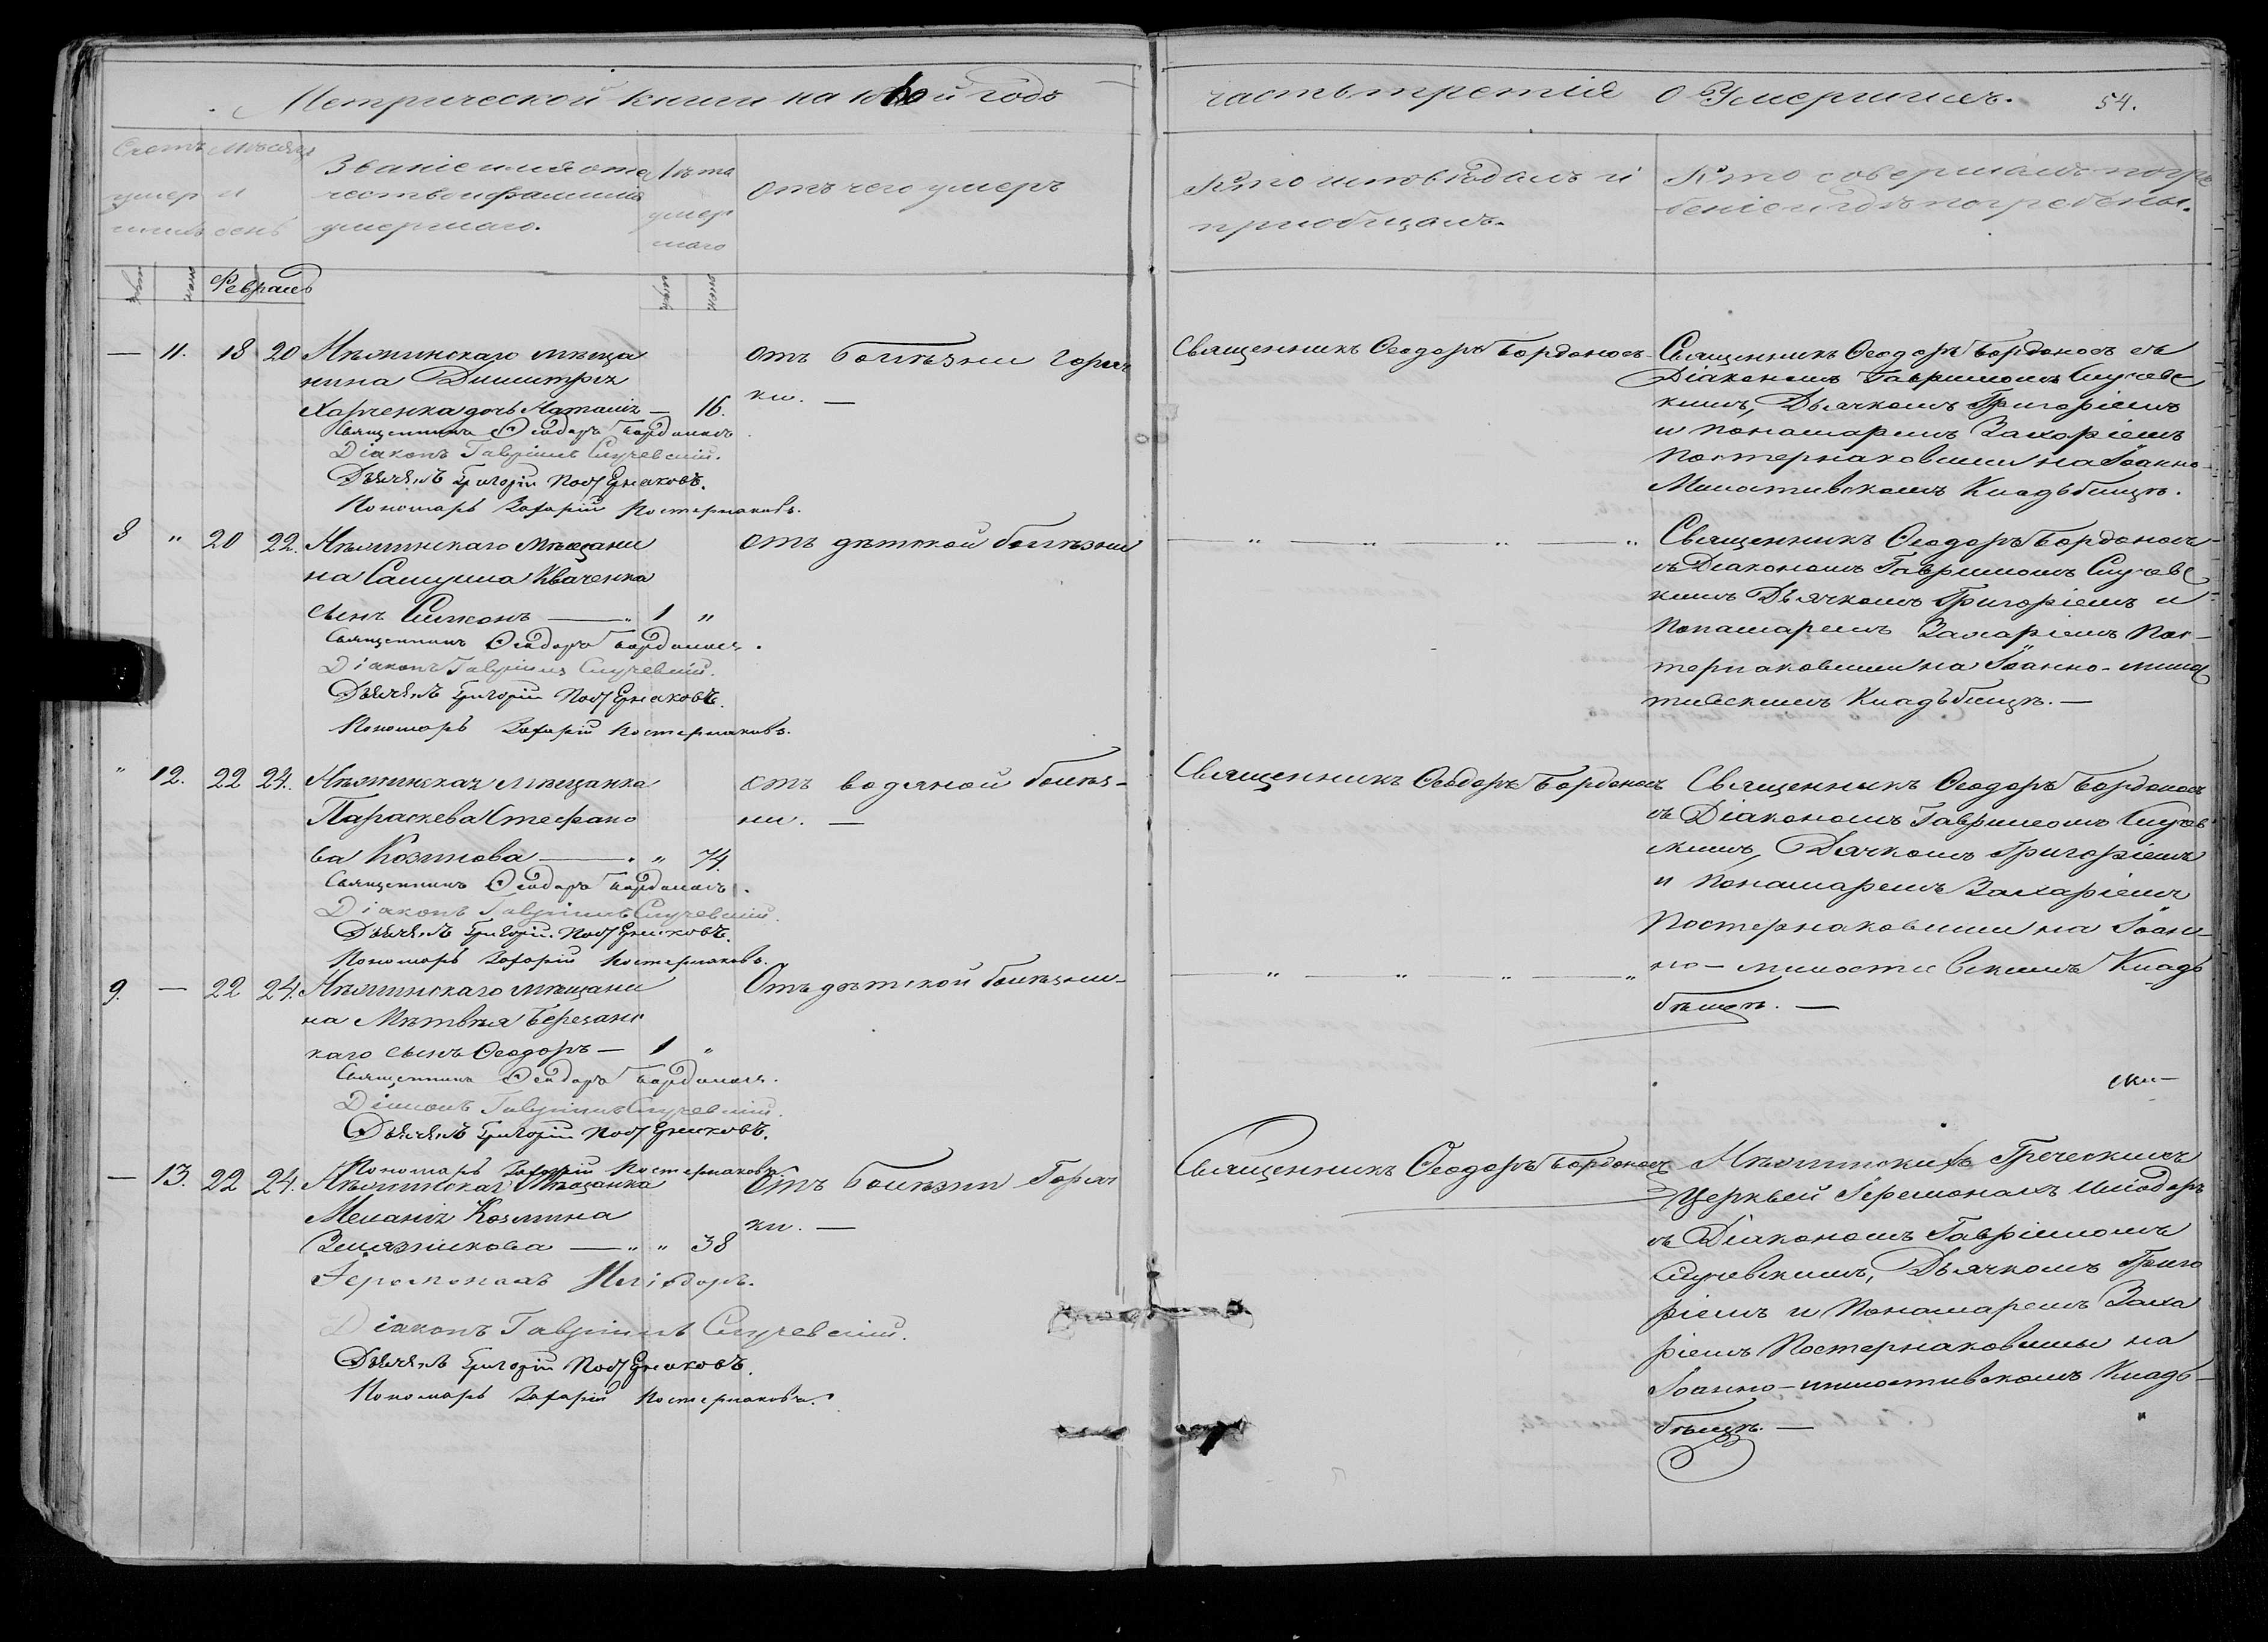 Метрической книги на 18 й годъ
часть третія о Умершихъ. 54.
Счетъ умершихъ
Мѣсяцъ и день
Званіе имя отче
ство и фамилія
умершаго.
Лѣта
умер
шаго
отъ чего умеръ
Кто исповѣдалъ и
пріобщалъ.
Кто совершалъ погре
беніе и гдѣ погребены.
Февраль
— 11. 18 20 Нѣжинскаго мѣща
нина Димитрія
Харченка дочь Наталія — 16.
Священникъ Ѳеодоръ Бордоносъ.
Діаконъ Гавріилъ Случевскій.
Дьячекъ Григорій Постернаковъ.
Пономарь Захарій Постернаковъ.
отъ болѣзни горяч
ки. —
Священникъ Ѳеодоръ Бордоносъ
Священникъ Ѳеодоръ Бордоносъ съ
Діакономъ Гавріиломъ Случевс
кимъ, Дьячкомъ Григоріемъ
и Понамаремъ Захаріемъ
Постернаковыми на Іоанно-
Милостивскомъ Кладьбищѣ.
8 " 20 22. Нѣжинскаго мѣщани
на Самуила Кваченка
сынъ Симонъ — " 1 "
Священникъ Ѳеодоръ Бордоносъ.
Діаконъ Гавріилъ Случевскій.
Дьячекъ Григорій Постернаковъ.
Пономарь Захарій Постернаковъ.
отъ дѣтской болѣзни
— " — " — " — "
Священникъ Ѳеодоръ Бордоносъ
съ Діакономъ Гавріиломъ Случевс
кимъ Дьячкомъ Григоріемъ и
Понамаремъ Захаріемъ Пос-
тернаковыми на Іоанно-милос
тивскимъ Кладьбищѣ. —
" 12. 22 24. Нѣжинская мѣщанка
Параскева Стефано
ва Козинова — " " 74.
Священникъ Ѳеодоръ Бордоносъ.
Діаконъ Гавріилъ Случевскій.
Дьячекъ Григорій Постернаковъ.
Пономарь Захарій Постернаковъ.
отъ водяной болѣз-
ни. —
Священникъ Ѳеодоръ Бордоносъ
Священникъ Ѳеодоръ Бордоносъ
съ Діакономъ Гавріиломъ Случев
скимъ, Дячкомъ Григоріемъ
и Понамаремъ Захаріемъ
Постернаковыми на Іоан-
но-милостивскимъ Кладь
бищѣ. —
9. — 22 24. Нѣжинскаго мѣщани
на Матвѣя Березанс
каго сынъ Ѳеодоръ — 1 "
Священникъ Ѳеодоръ Бордоносъ.
Діаконъ Гавріилъ Случевскій.
Дьячекъ Григорій Постернаковъ.
Пономарь Захарій Постернаковъ.
Отъ дѣтской болѣзни
— " — " — " — "
— 13. 22 24. Нѣжинская Мѣщанка
Меланія Козмина
— " " 38
Іеромонахъ Иліодоръ.
Діаконъ Гавріилъ Случевскій.
Дьячекъ Григорій Постернаковъ.
Пономарь Захарій Постернаковъ.
Отъ болѣзни Горяч
ки. —
Священникъ Ѳеодоръ Бордоносъ
Нѣжинскихъ Греческихъ
Церквей Іеромонахъ Иліодоръ
съ Діакономъ Гавріиломъ
Случевскимъ, Дьячкомъ Григо
ріемъ и Понамаремъ Заха
ріемъ Постернаковыми на
Іоанно-милостивскомъ Кладь-
бищѣ. —